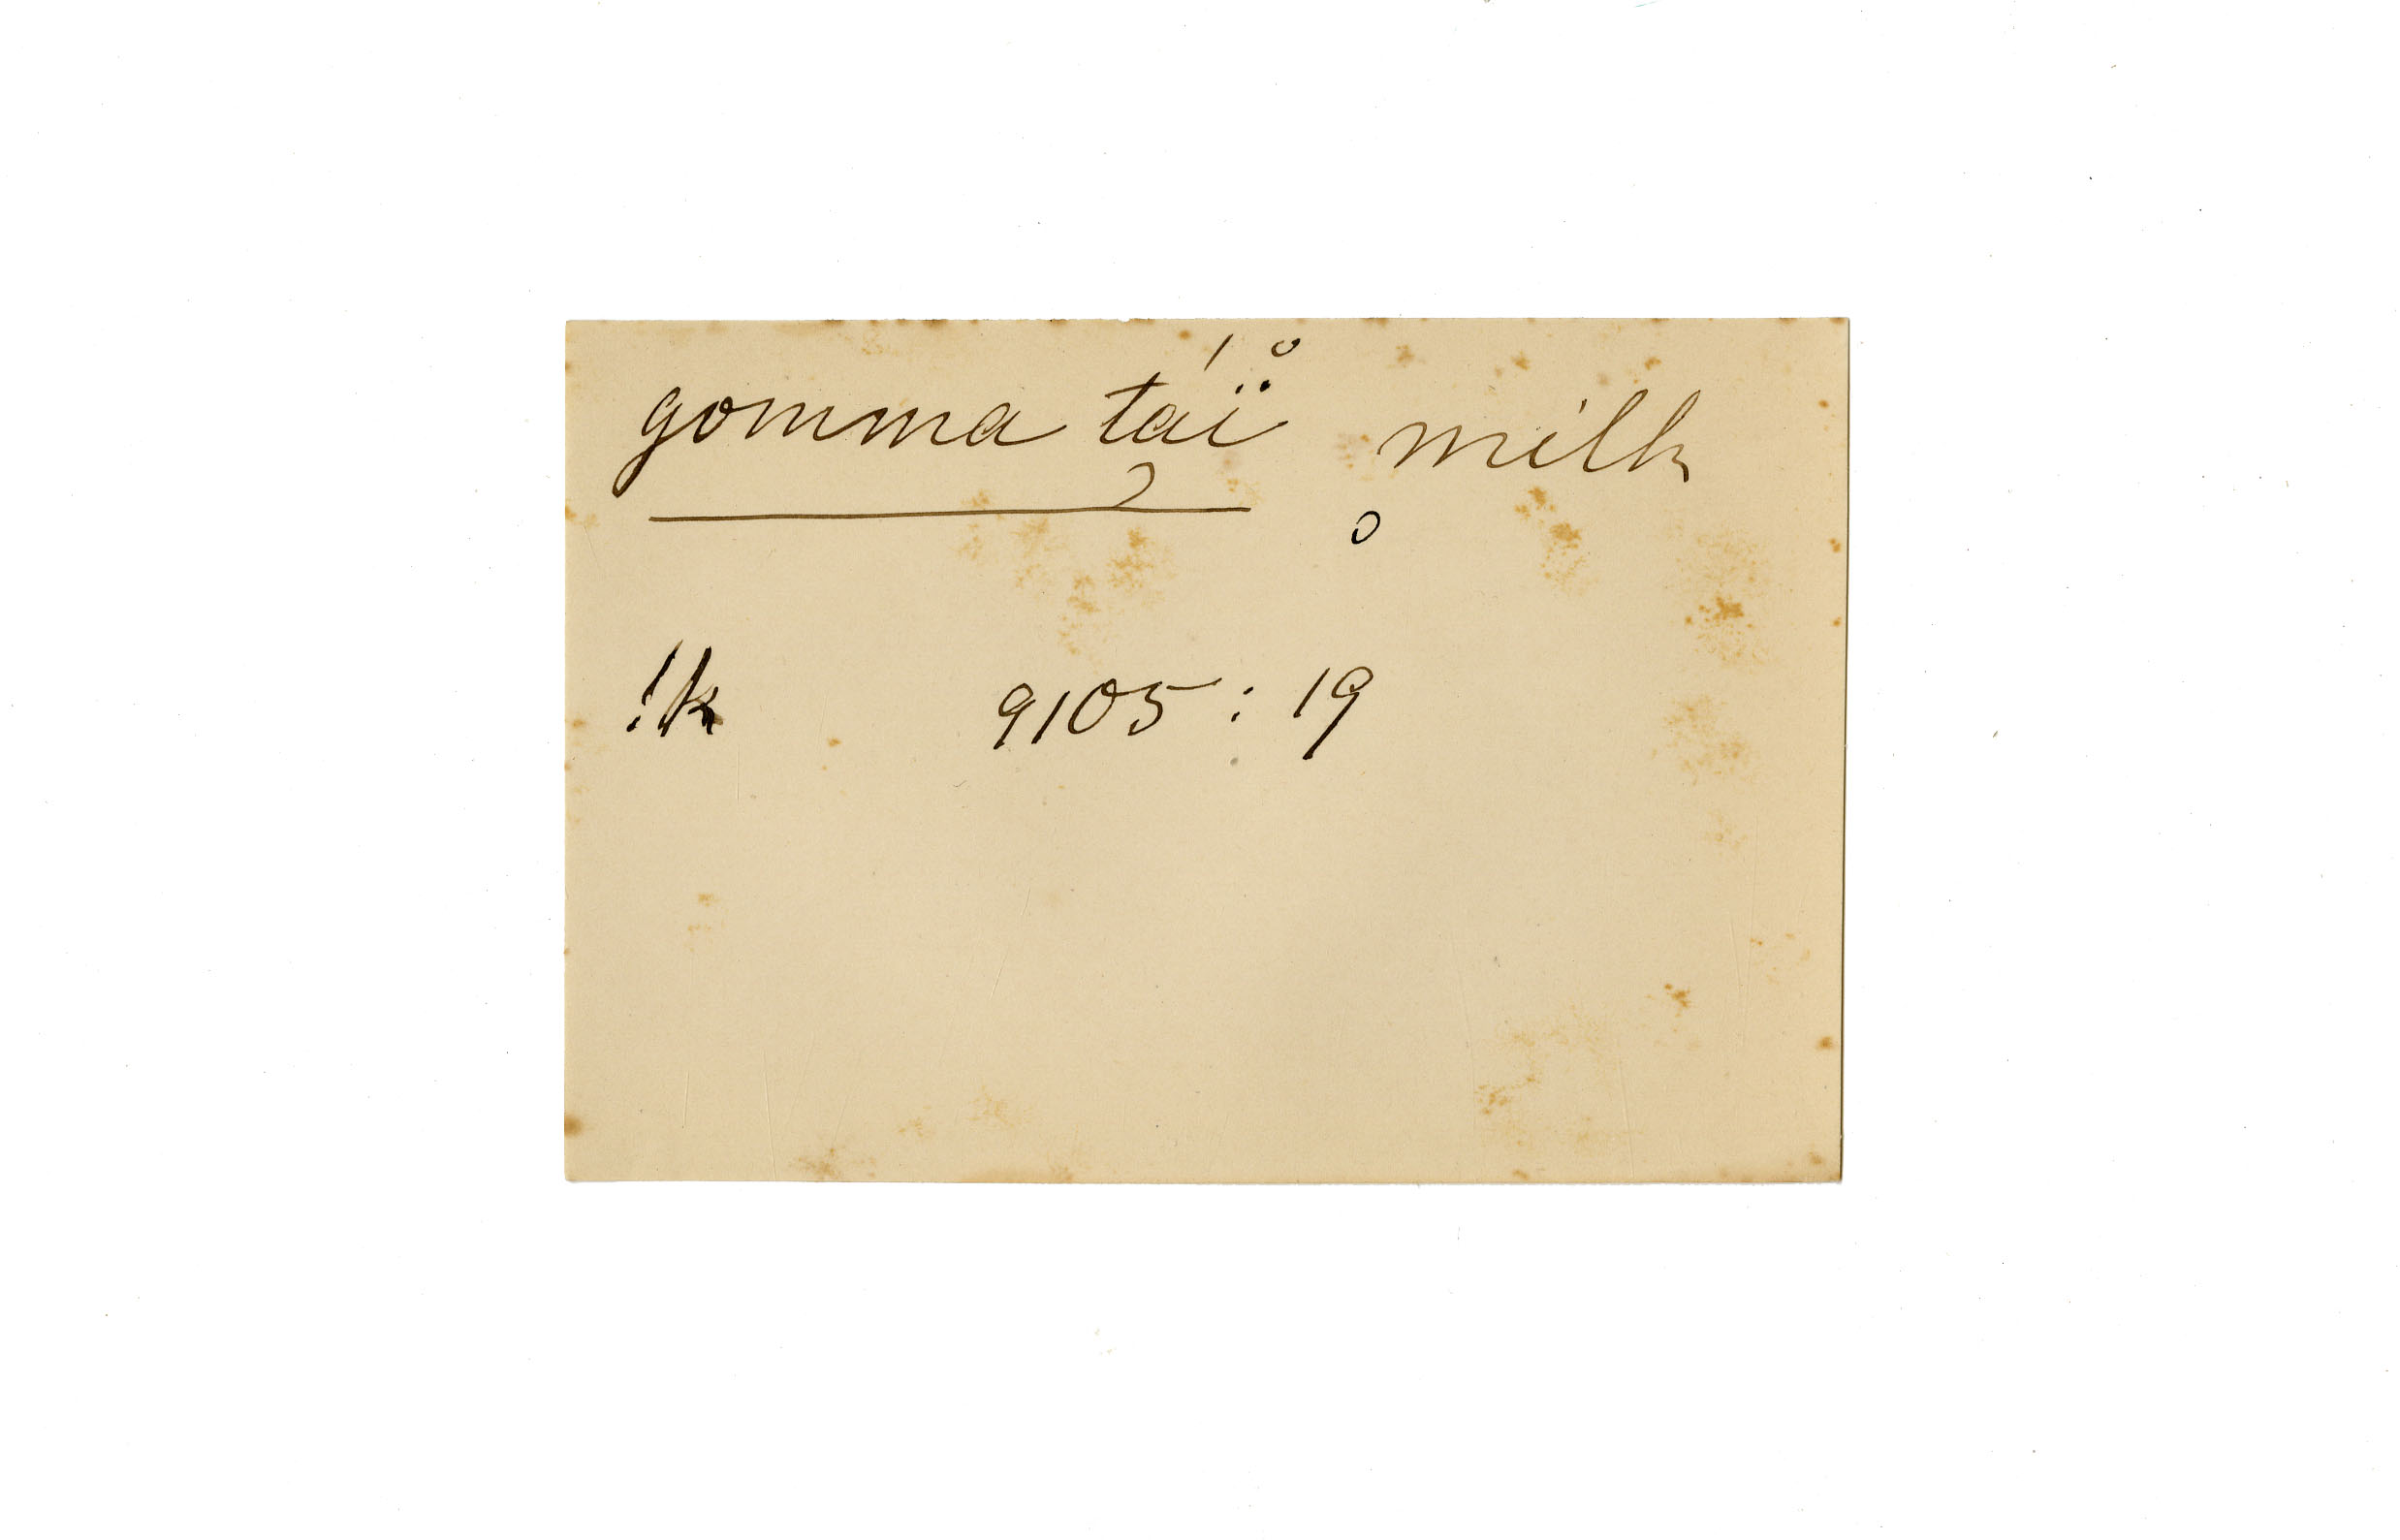 gomma taí̈ milk
!k 9105 : 19